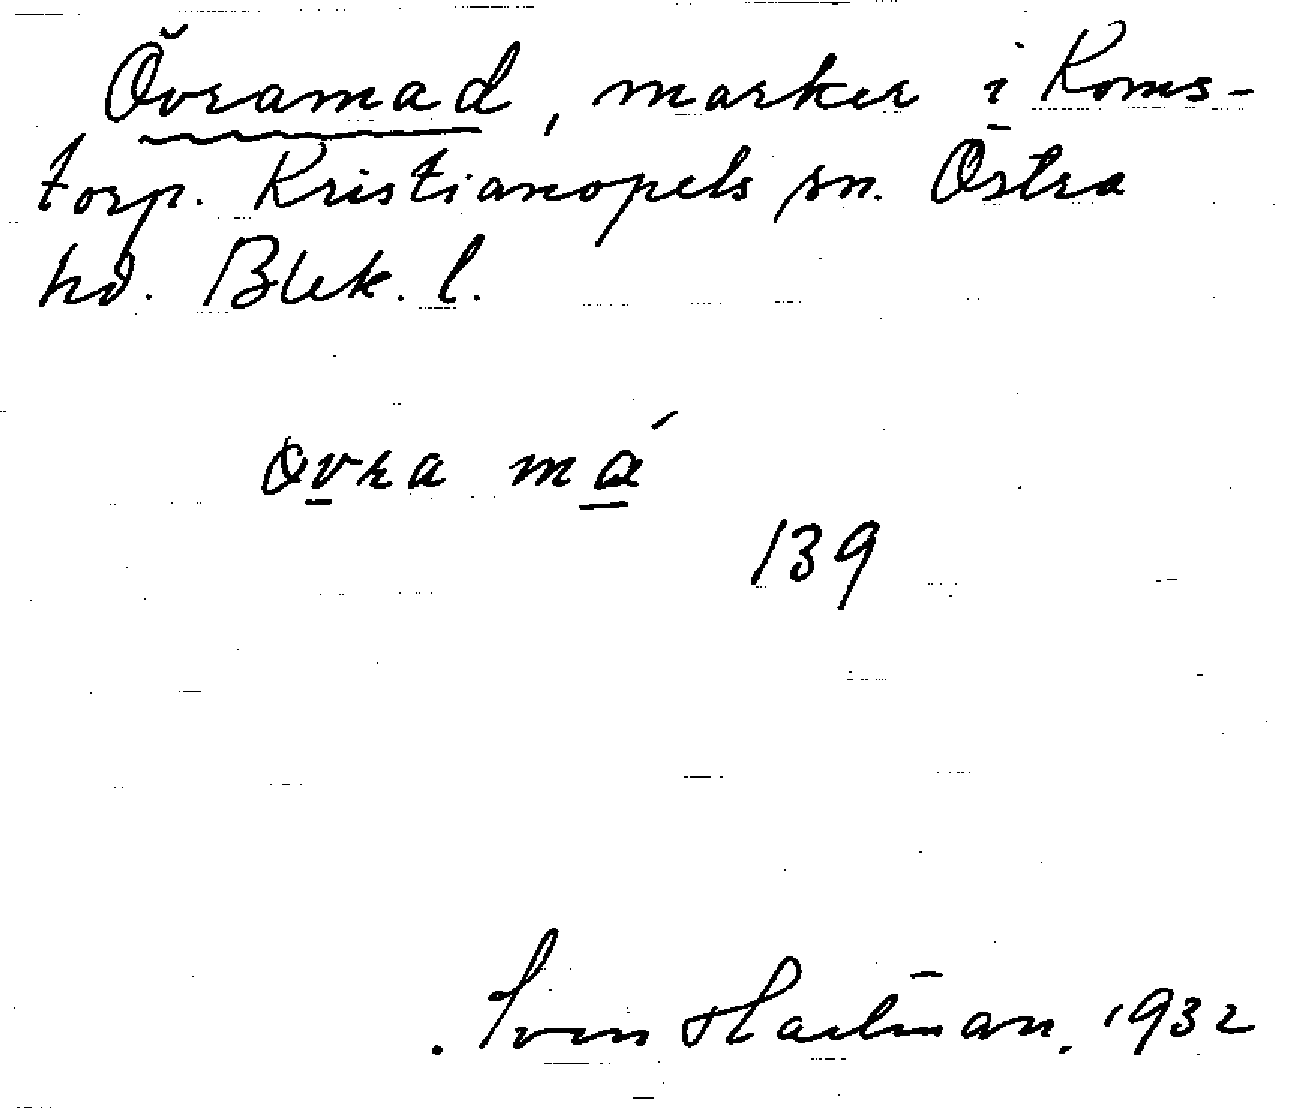 Övramad, marker i Roms-
torp. Kristianopels sn. Östra
hd. Blek. l.
øvra má
139
Sven Hartman. 1932